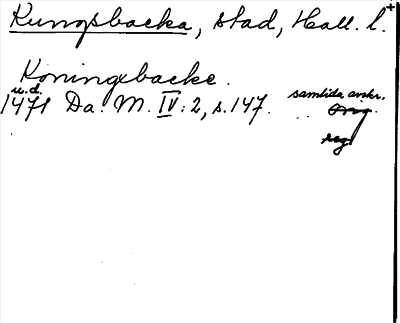 Kungsbacka, stad, Hall. l. +
Koningxbacke.
u.d.
1471 Da. M. IV: 2, s. 147. samtida avskr.
Orig.
reg